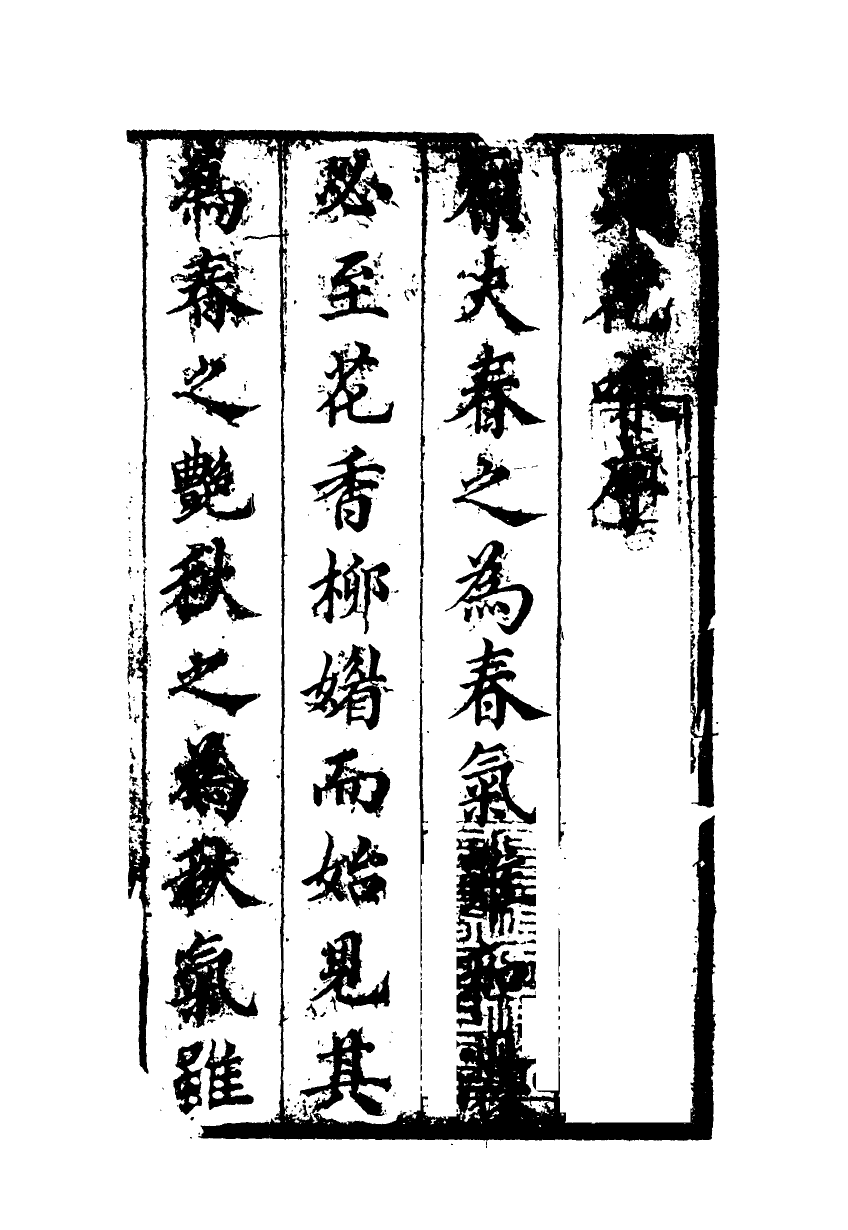 花咏序
原夫春之為春氣雖和
必至花香柳媚而始見其
為春之艷秋之為秋氣雖